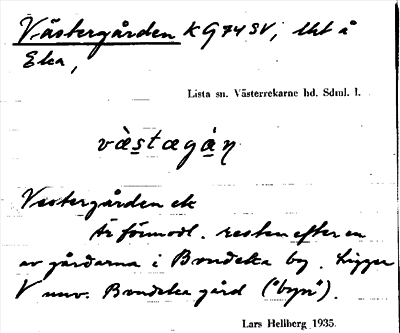 Västergården KG74SV, lht å
Eka,
Lista sn. Västerrekarne hd. Sdml. l.
vàstægán
Vestergården ek
Är förmodl. resten efter en
av gårdarna i Brudeka by. Ligger
V unv. Brudeka gård ("byn").
Lars Hellberg 1935.